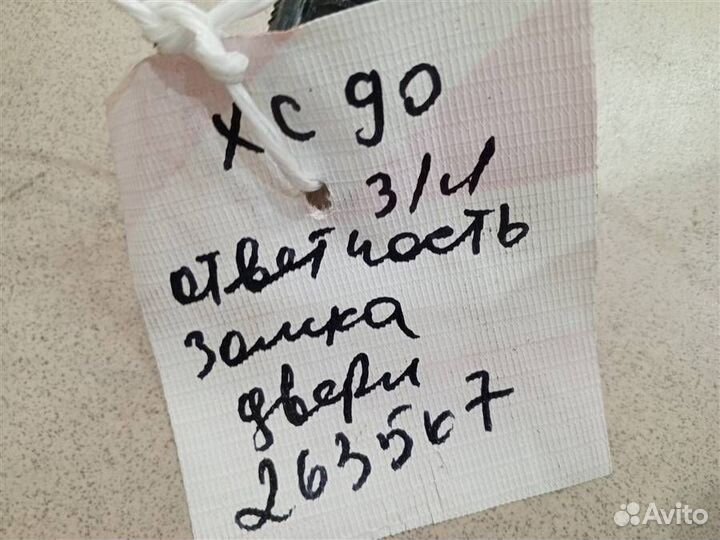 XC 90
З/Л
ответность
замка
двери
2635к7
Avito